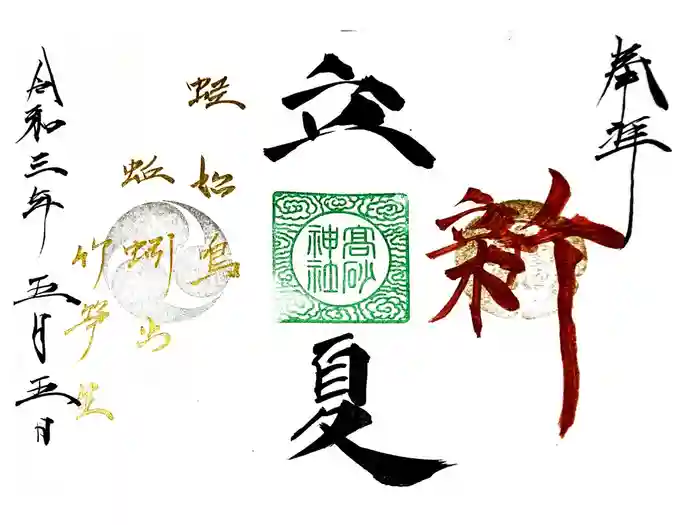 奉拝
新
立夏
高砂
神社
蛙始鳴
蚯蚓出
竹笋生
令和三年五月五日